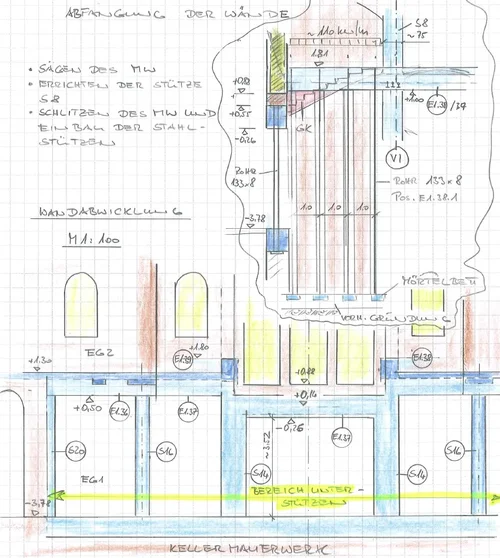 ABFANGUNG DER WÄNDE
• SÄGEN DES MW
• ERRICHTEN DER STÜTZE
S8
• SCHLITZEN DES MW UND
EINBAU DER STAHL-
STÜTZEN
WANDABWICKLUNG
M 1:100
~110 kN/m
S8
~75
1.81
+0,55
-0,26
GK
+1.00
E1.38 / 37
V1
ROHR
133x8
ROHR 133x8
POS. E1.38.1
1.0
1.0
1.0
-3.78
MÖRTELBETT
VORH. GRÜNDUNG
EG2
+1.30
E1.39
+1.80
E1.38
+0,88
+0,14
-0,26
+0,50
E1.36
E1.37
E1.37
~3.52
S20
S16
S14
S14
S16
EG1
-3,78
BEREICH UNTER-
STÜTZEN
KELLERMAUERWERK